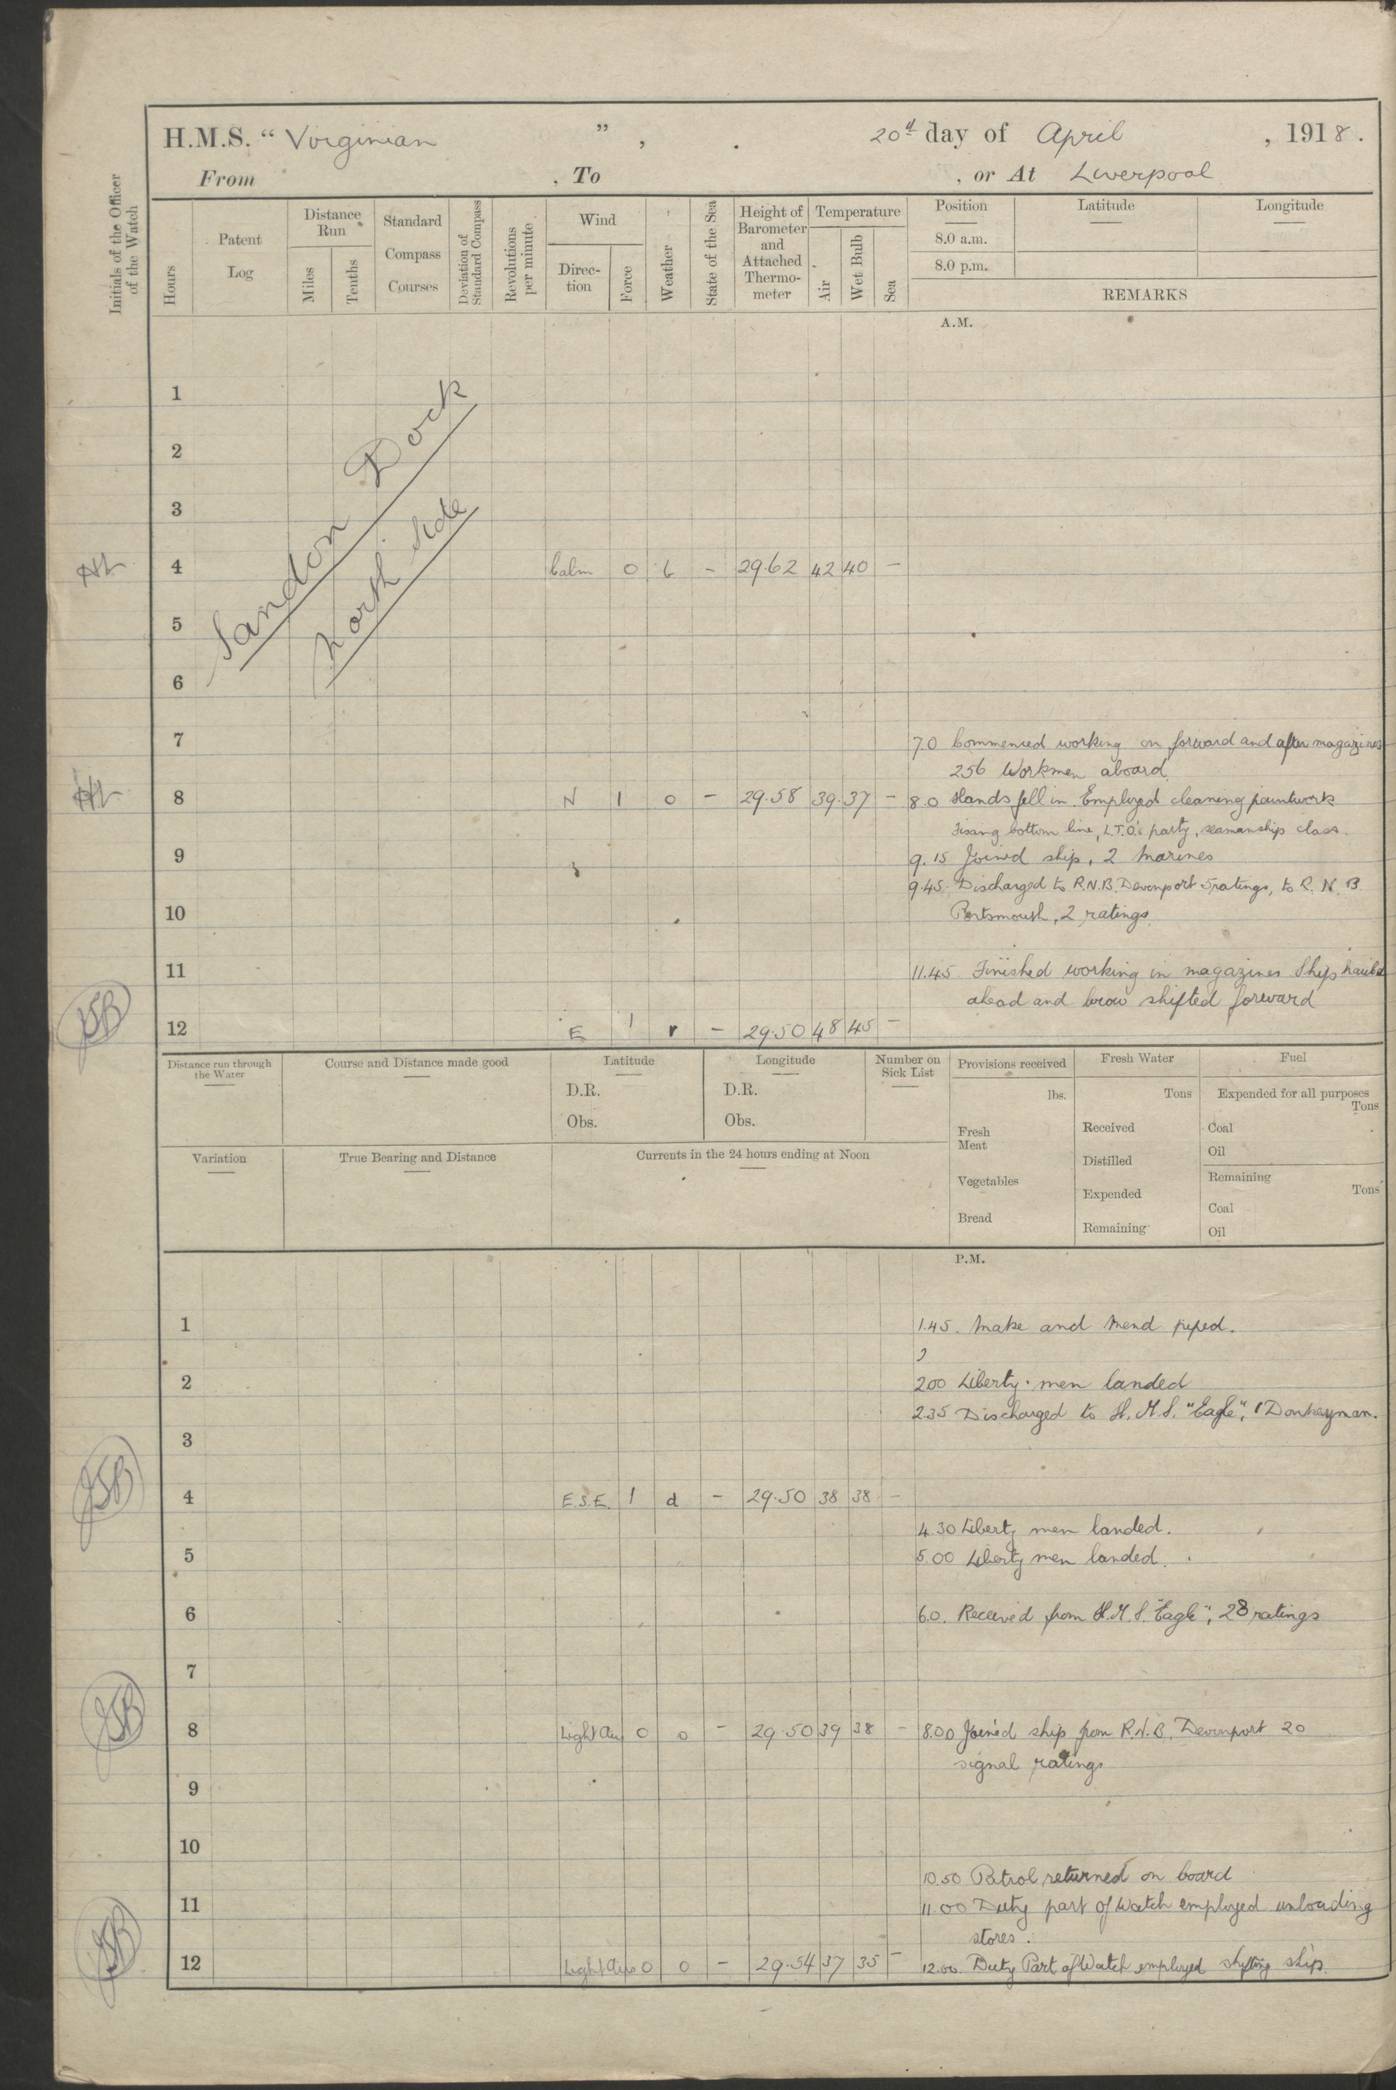 H.M.S. “ Virginian ” , . 20th day of April , 1918.
From , To , or At Liverpool
Initials of the Officer of the Watch
Hours
Patent Log
Distance Run
Miles
Tenths
Standard Compass Courses
Deviation of Standard Compass
Revolutions per minute
Wind
Direc-tion
Force
Weather
State of the Sea
Height of Barometer and Attached Thermo-meter
Temperature
Air
Wet Bulb
Sea
Position Latitude Longitude
8.0 a.m.
8.0 p.m.
REMARKS
A.M.
Sandon Dock
North Side
1
2
3
4 Calm 0 b - 29.62 42 40 -
5
6
7 7.0 Commenced working on forward and after magazines
256 Workmen aboard.
8 N 1 o - 29.58 39. 37 - 8.0 Hands fell in. Employed cleaning paintwork
bottom line, L.T.O.'s party, seamanship class.
9 9.15 Joined ship, 2 Marines
9.45. Discharged to R.N.B. Devonport 5 ratings, to R.N.B.
10 Portsmouth, 2 ratings.
11 11.45 Finished working in magazines Ship hauled
ahead and brow shifted forward
JSB 12 E 1 r - 29.50 48 45 -
Distance run through the Water
Course and Distance made good
Latitude
D.R.
Obs.
Longitude
D.R.
Obs.
Number on Sick List
Provisions received
lbs.
Fresh Meat
Vegetables
Bread
Fresh Water
Tons
Received
Distilled
Expended
Remaining
Fuel
Expended for all purposes
Tons
Coal
Oil
Remaining
Tons
Coal
Oil
Variation
True Bearing and Distance
Currents in the 24 hours ending at Noon
P.M.
1 1.45. Make and Mend piped.
2 2.00 Liberty men landed
2.35 Discharged to H.M.S. "Eagle", 1 Donkeyman.
3
JSB 4 E.S.E. 1 d - 29.50 38 38 -
4.30 Liberty men landed.
5 5.00 Liberty men landed.
6 6.0. Received from H.M.S. "Eagle", 28 ratings
7
JSB 8 Light Air 0 o - 29.50 39 38 - 8.00 Joined ship from R.N.B. Devonport 20
signal ratings
9
10
10.50 Patrol returned on board
11 11.00 Duty part of Watch employed unloading
stores.
JSB 12 Light Airs 0 o - 29.54 37 35 - 12.00. Duty Part of Watch employed shifting ship.